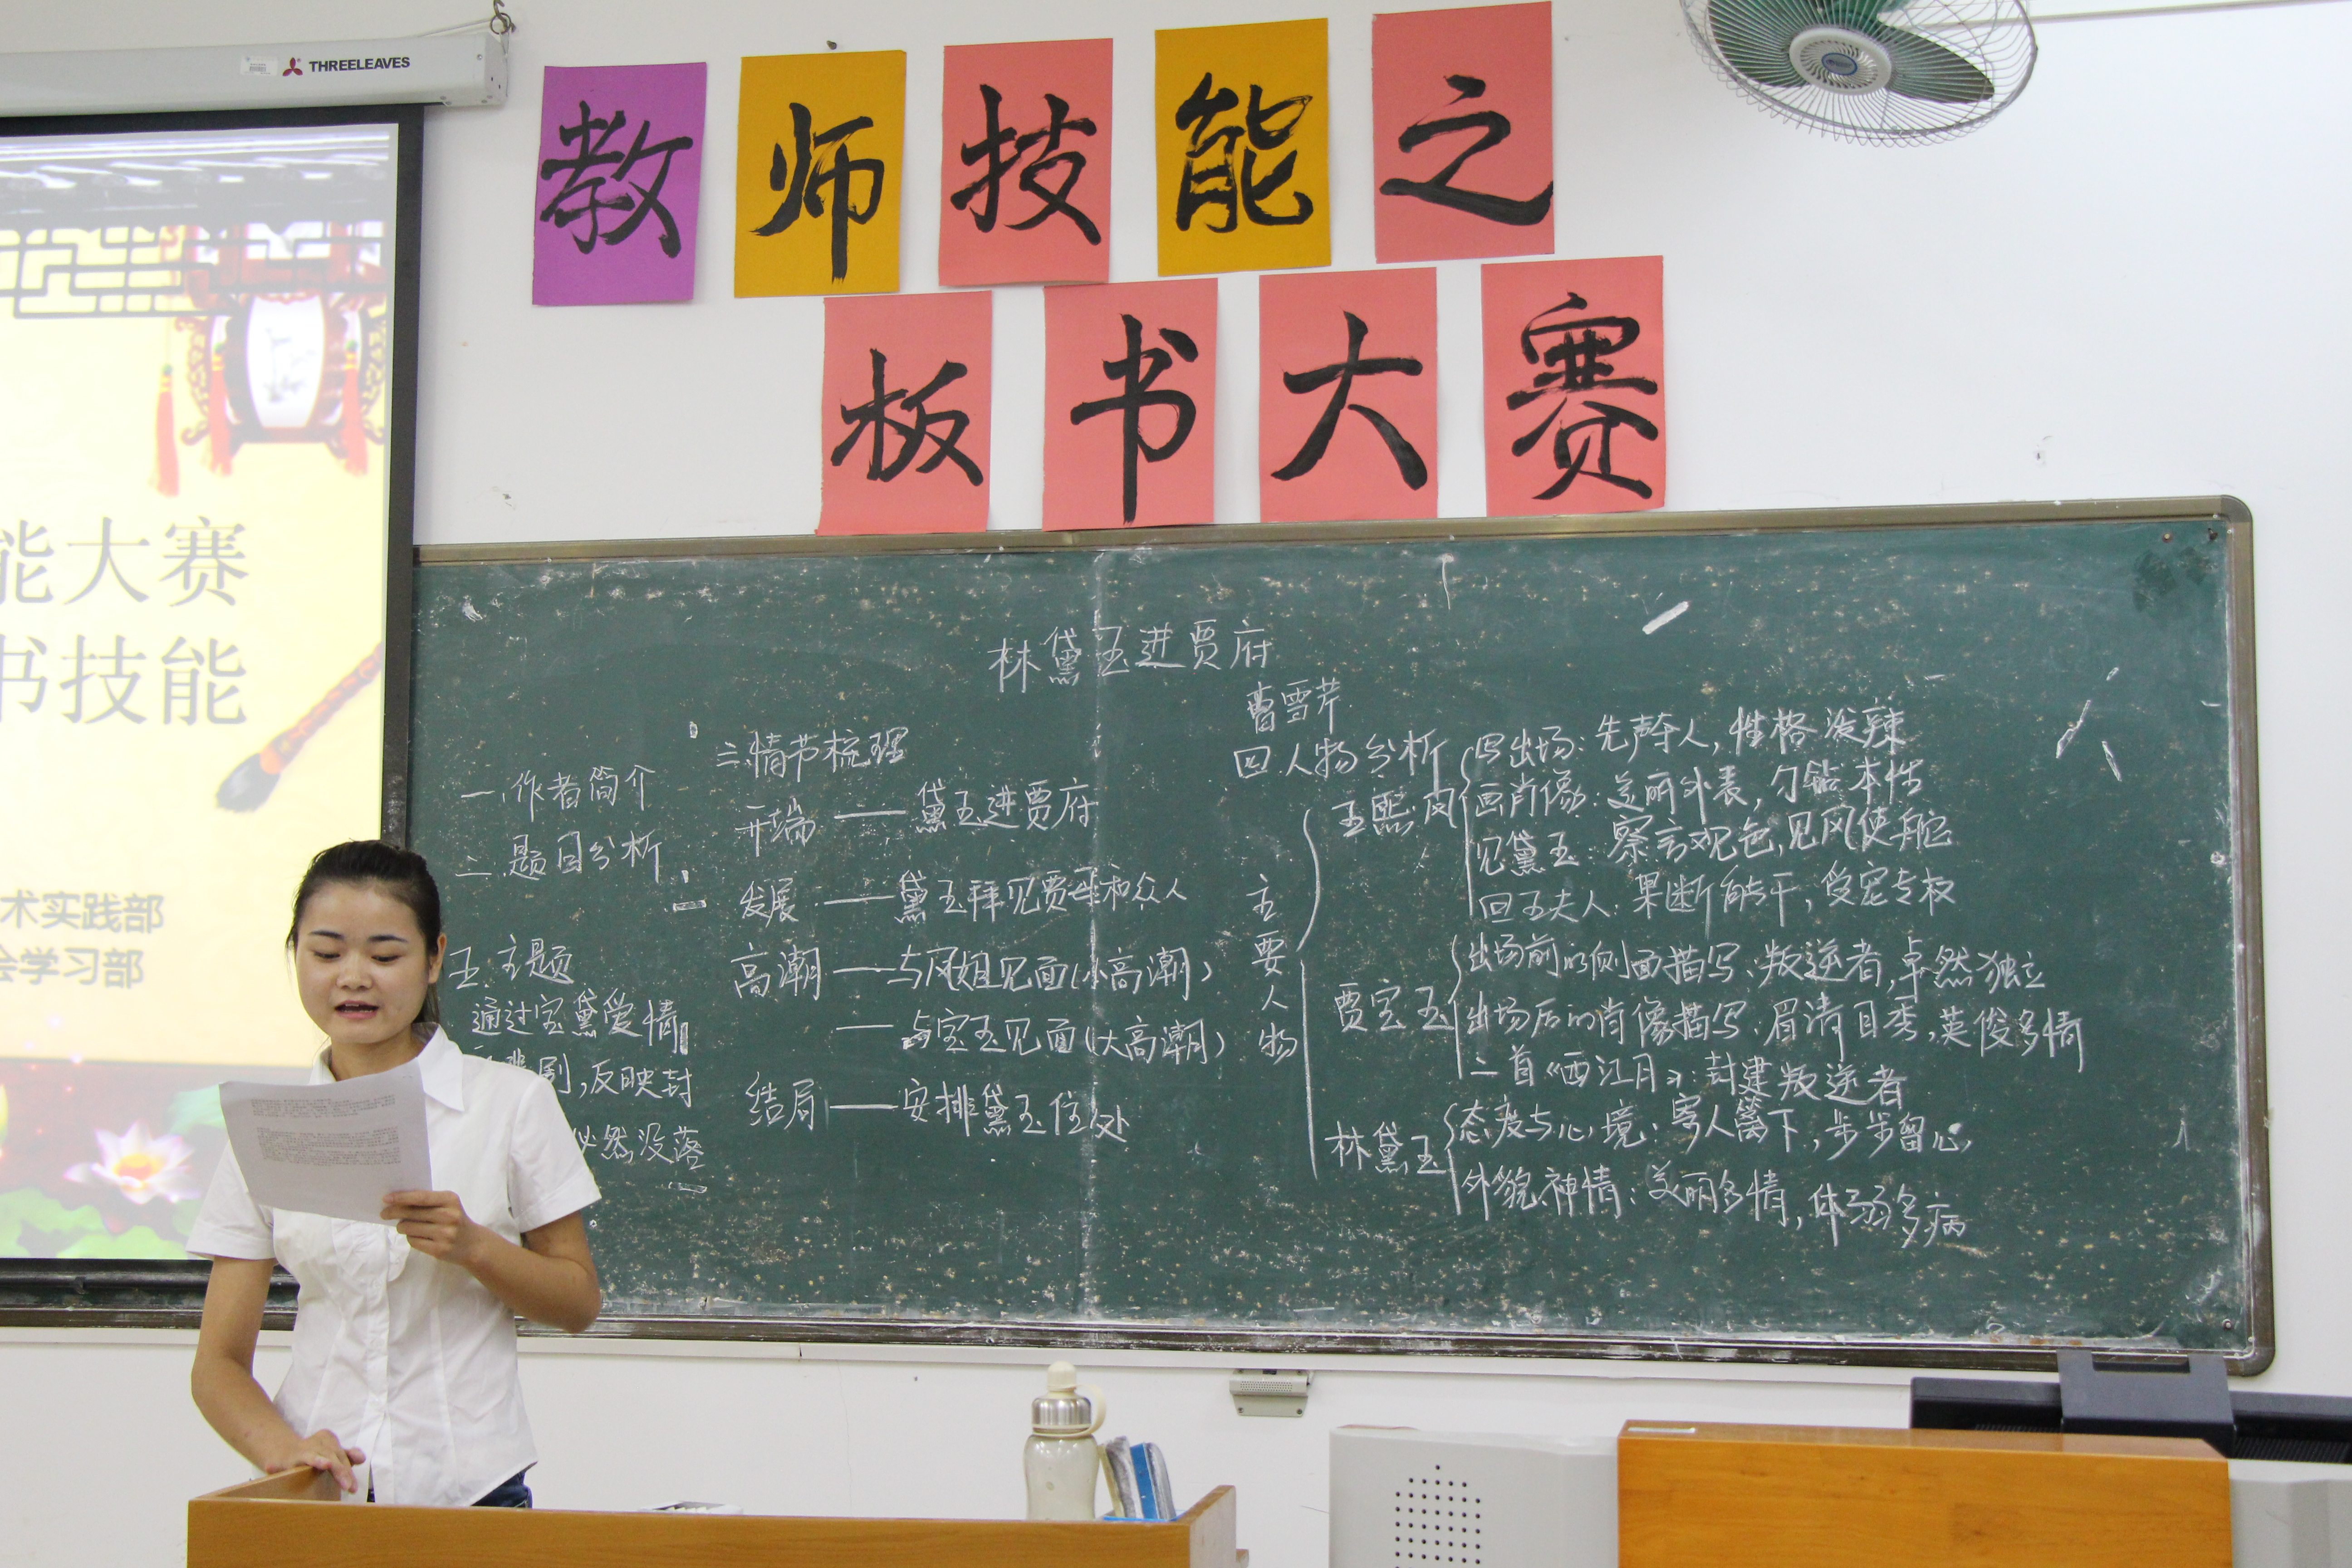 THREELEAVES
教师技能之
板书大赛
能大赛
书技能
术实践部
会学习部
林黛玉进贾府
曹雪芹
一.作者简介
二.题目分析
三.情节梳理
开端——黛玉进贾府
发展——黛玉拜见贾母和众人
高潮——与凤姐见面(小高潮)
——与宝玉见面(大高潮)
结局——安排黛玉住处
四.人物分析
主要人物
王熙凤
写出场:先声夺人,性格泼辣
画肖像:美丽外表,刁钻本性
见黛玉:察言观色,见风使舵
回王夫人:果断能干,受宠专权
贾宝玉
出场前的侧面描写:叛逆者,卓然独立
出场后的肖像描写:眉清目秀,英俊多情
二首《西江月》:封建叛逆者
林黛玉
态度与心境:寄人篱下,步步留心,
外貌神情:美丽多情,体弱多病
五.主题
通过宝黛爱情
悲剧,反映封
必然没落